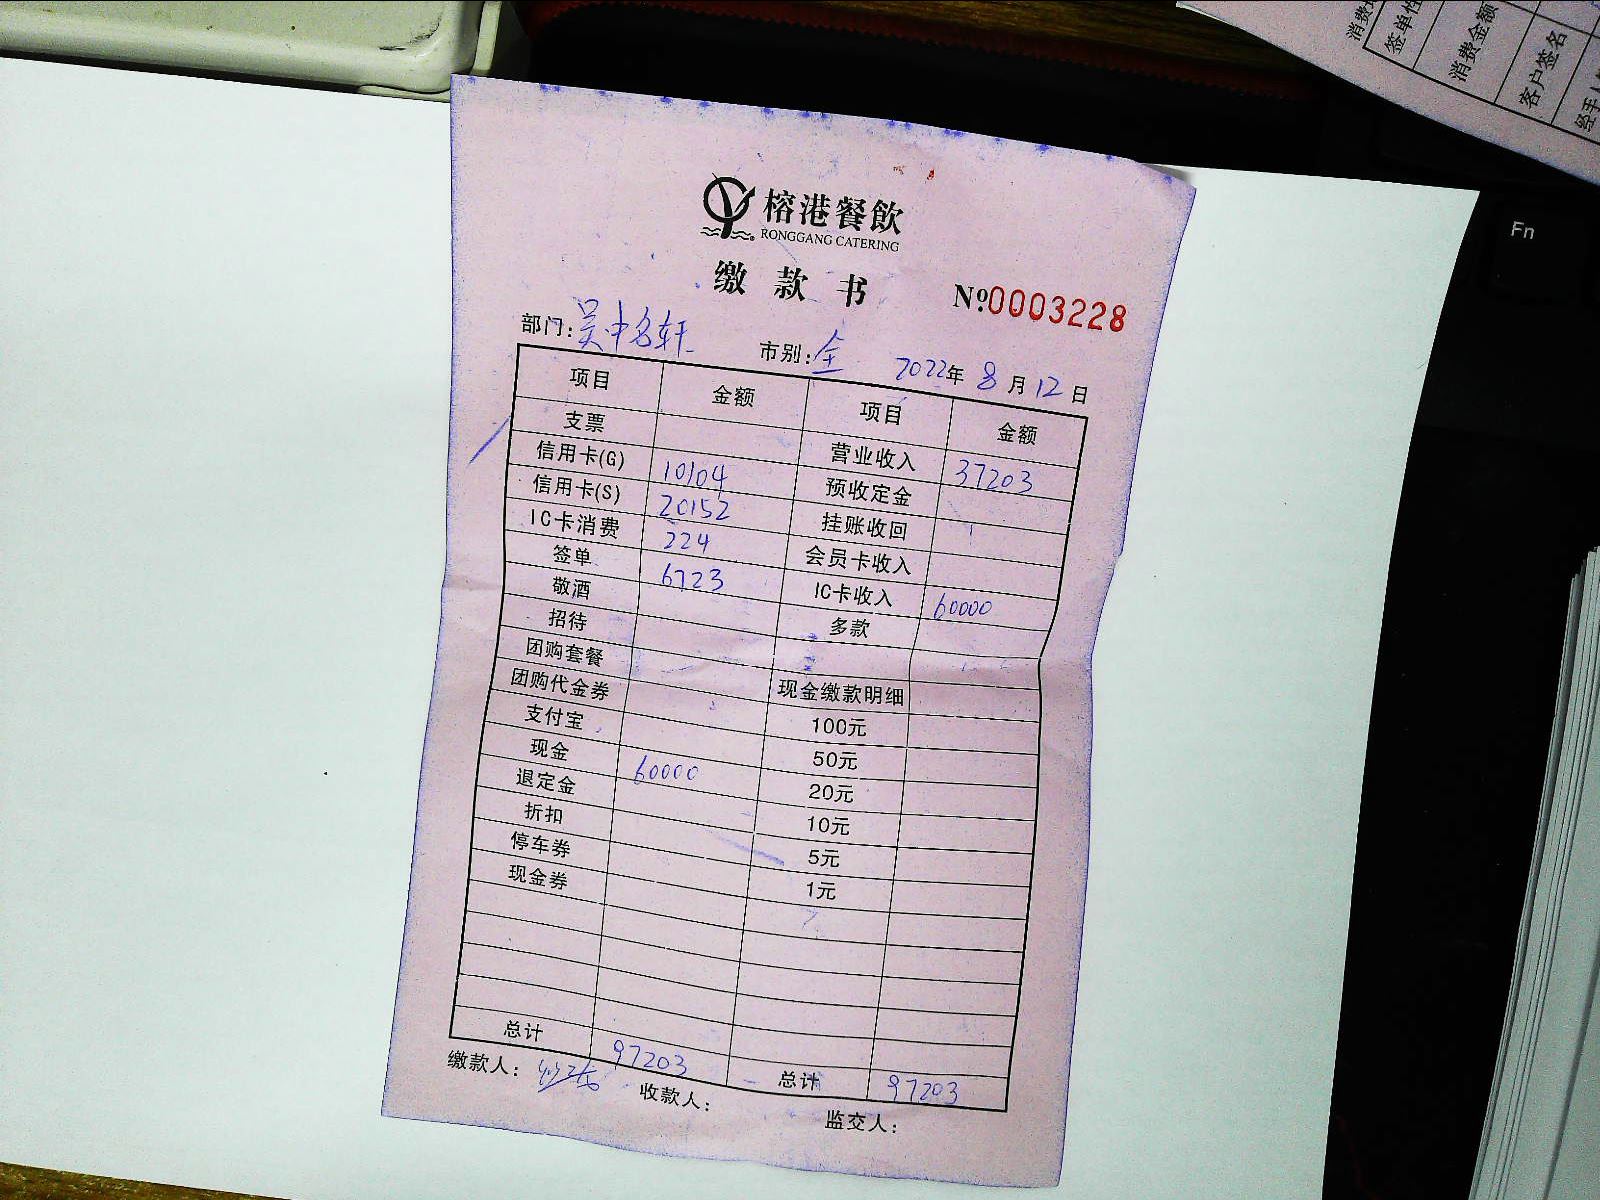 榕港餐飲
RONGGANG CATERING
缴款书 №0003228
部门: 吴中名轩 市别: 全 2022年 8月12日
项目 金额 项目 金额
支票 营业收入 37203
信用卡(G) 10104 预收定金
信用卡(S) 20152 挂账收回
IC卡消费 224 会员卡收入
签单 6723 IC卡收入 60000
敬酒 多款
招待
团购套餐 现金缴款明细
团购代金券 100元
支付宝 50元
现金 60000 20元
退定金 10元
折扣 5元
停车券 1元
现金券
总计 97203 总计 97203
缴款人: 收款人: 监交人:
消费
签单性
消费金额
客户签名
经手
Fn